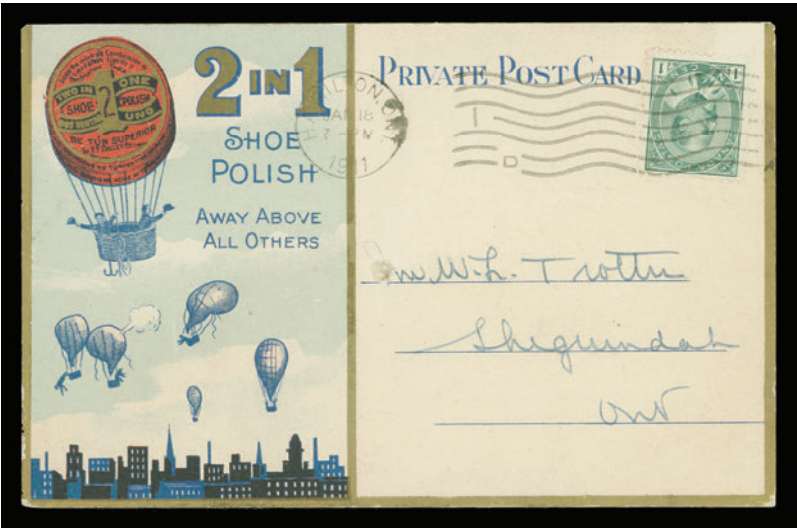 TWO IN ONE
SHOE 2 POLISH
UNO
BE TÜM SUPERIOR
2 IN 1
SHOE
POLISH
AWAY ABOVE
ALL OTHERS
PRIVATE POST CARD
HAMILTON, ONT.
JAN 18
7 - PM
1911
1 1
D
W. L. Trotter
Sheguindah
Ont